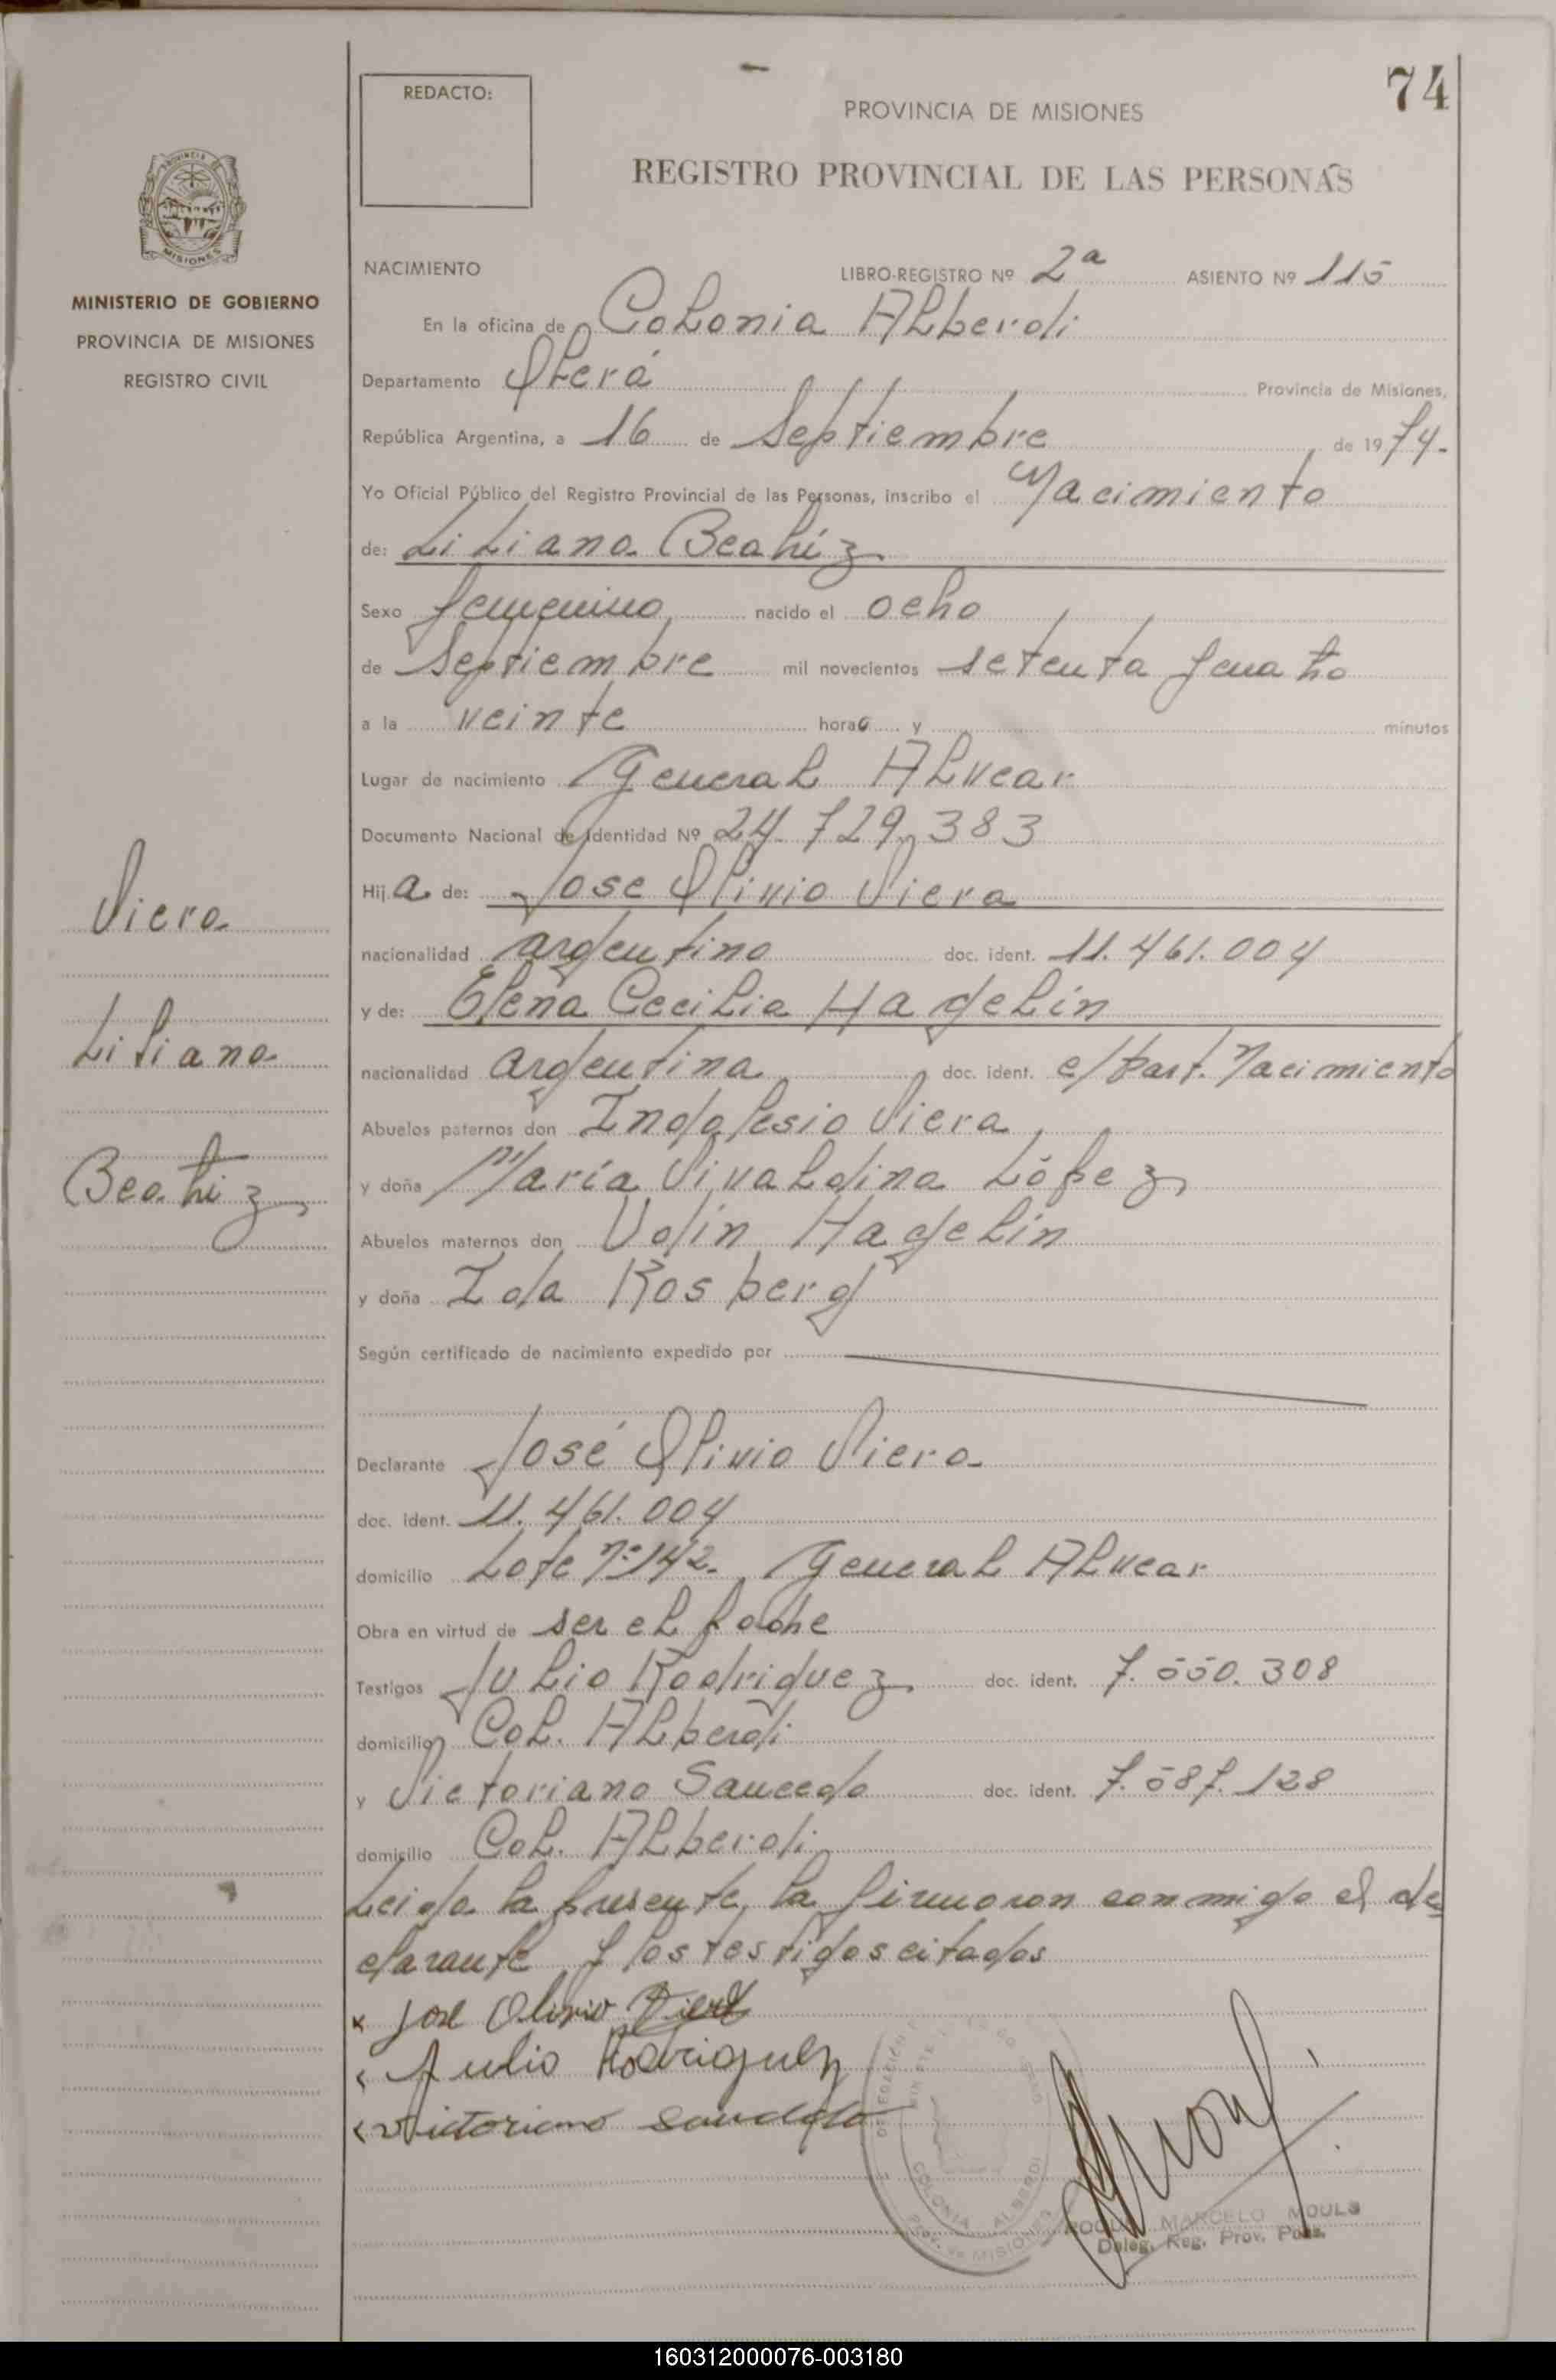 74
REDACTO:
PROVINCIA DE MISIONES
REGISTRO PROVINCIAL DE LAS PERSONAS
PROVINCIA DE
MISIONES
MINISTERIO DE GOBIERNO
PROVINCIA DE MISIONES
REGISTRO CIVIL
NACIMIENTO LIBRO-REGISTRO Nº 2ª ASIENTO Nº 115
En la oficina de Colonia Alberdi
Departamento Oberá Provincia de Misiones,
República Argentina, a 16 de Septiembre de 1974.
Yo Oficial Público del Registro Provincial de las Personas, inscribo el Nacimiento
de: Liliana Beatríz
Sexo femenino nacido el ocho
de Septiembre mil novecientos setenta y cuatro
a la veinte horas y minutos
Lugar de nacimiento General Alvear
Documento Nacional de Identidad Nº 24.729.383
Hija de: Jose Olivio Viera
nacionalidad argentino doc. ident. 11.461.004
y de: Elena Cecilia Hagelín
nacionalidad argentina doc. ident. c/part. Nacimiento
Abuelos paternos don Indalesio Viera
y doña María Sivaldina López
Abuelos maternos don Udín Hagelín
y doña Ida Rosberg
Según certificado de nacimiento expedido por
Declarante José Olivio Viera
doc. ident. 11.461.004
domicilio Lote Nº 142. General Alvear
Obra en virtud de ser el padre
Testigos Julio Rodriguez doc. ident. 7.550.308
domicilio Col. Alberdi
y Victoriano Saucedo doc. ident. 7.587.128
domicilio Col. Alberdi
Leida la presente, la firmaron conmigo el de
clarante y los testigos citados
x Jose Olivio Viera
Julio Rodriguez
Victoriano Saucedo
COLONIA ALBERDI
Prov. de MISIONES
MARCELO MOULS
Deleg. Reg. Prov. Pers.
Viera
Liliana
Beatriz
160312000076-003180